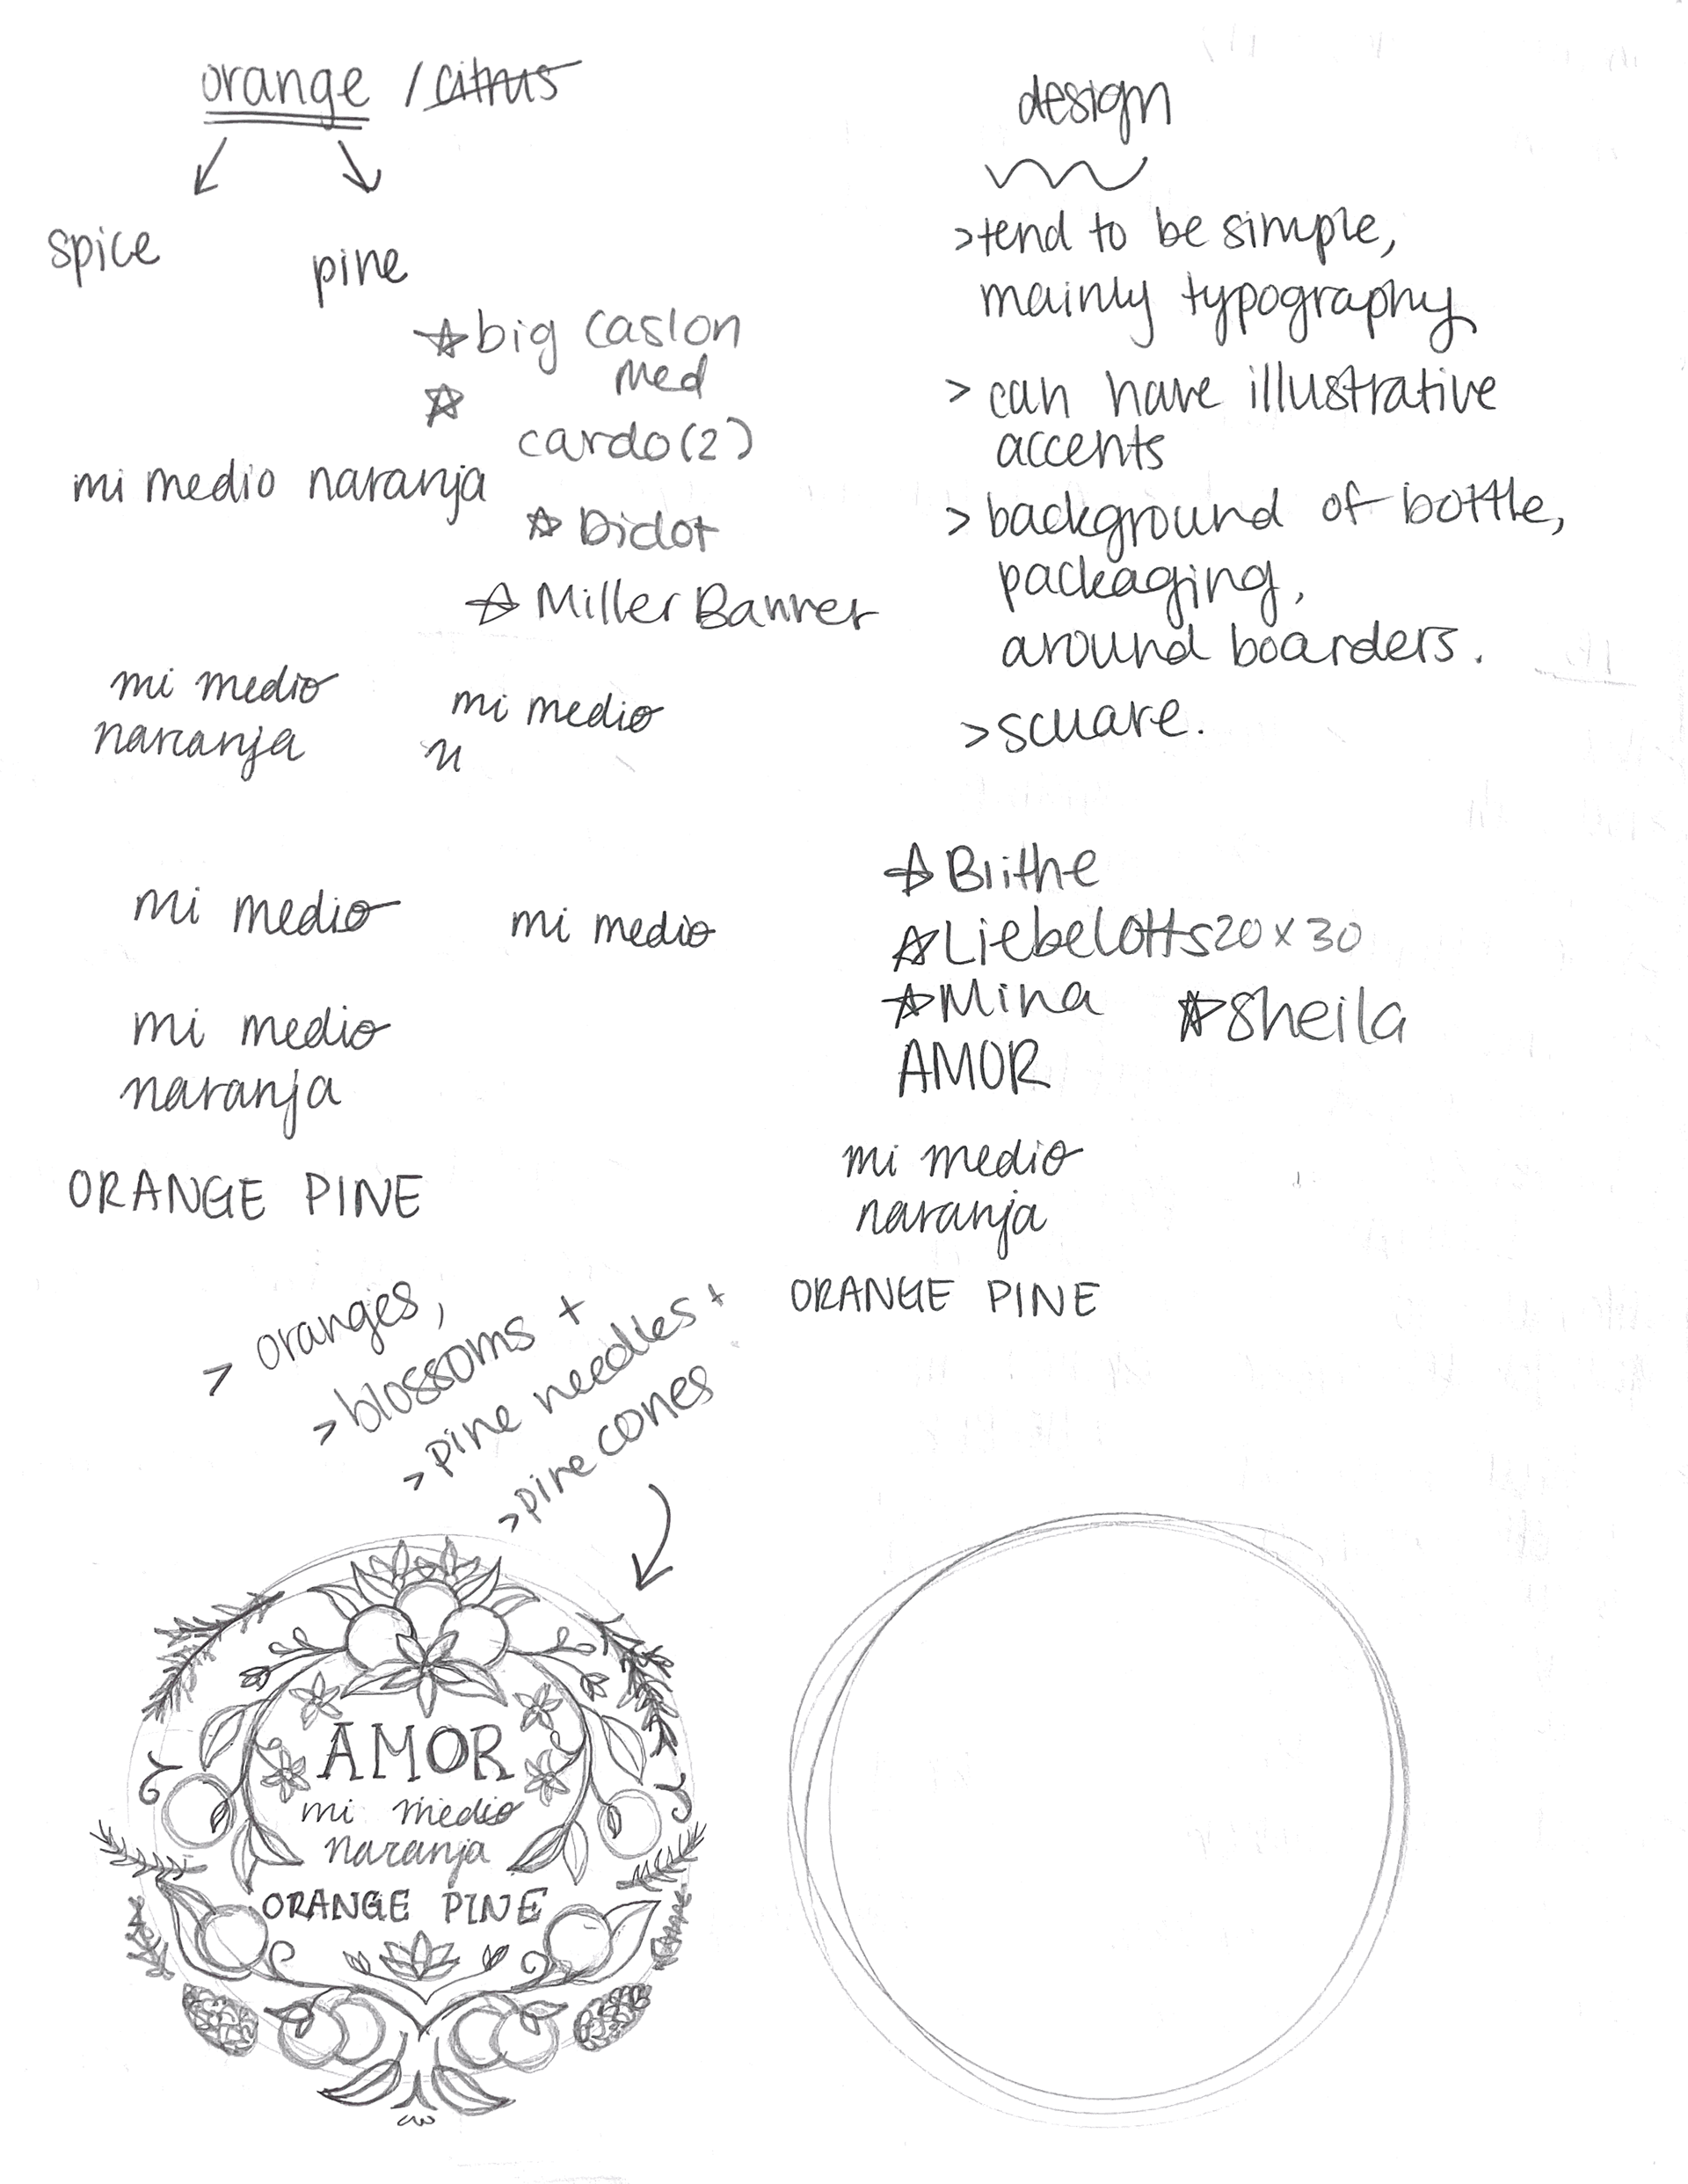 orange / citrus
spice
pine
big caslon
med
cardo (2)
mi medio naranja
Didot
Miller Banner
mi medio
naranja
mi medio
n
mi medio
mi medio
mi medio
naranja
ORANGE PINE
> oranges,
> blossoms +
> pine needles +
> pine cones
AMOR
mi medio
naranja
ORANGE PINE
design
> tend to be simple,
mainly typography
> can have illustrative
accents
> background of bottle,
packaging,
around boarders.
> scuare.
Blithe
Liebelotts 20 x 30
Mina
Sheila
AMOR
mi medio
naranja
ORANGE PINE